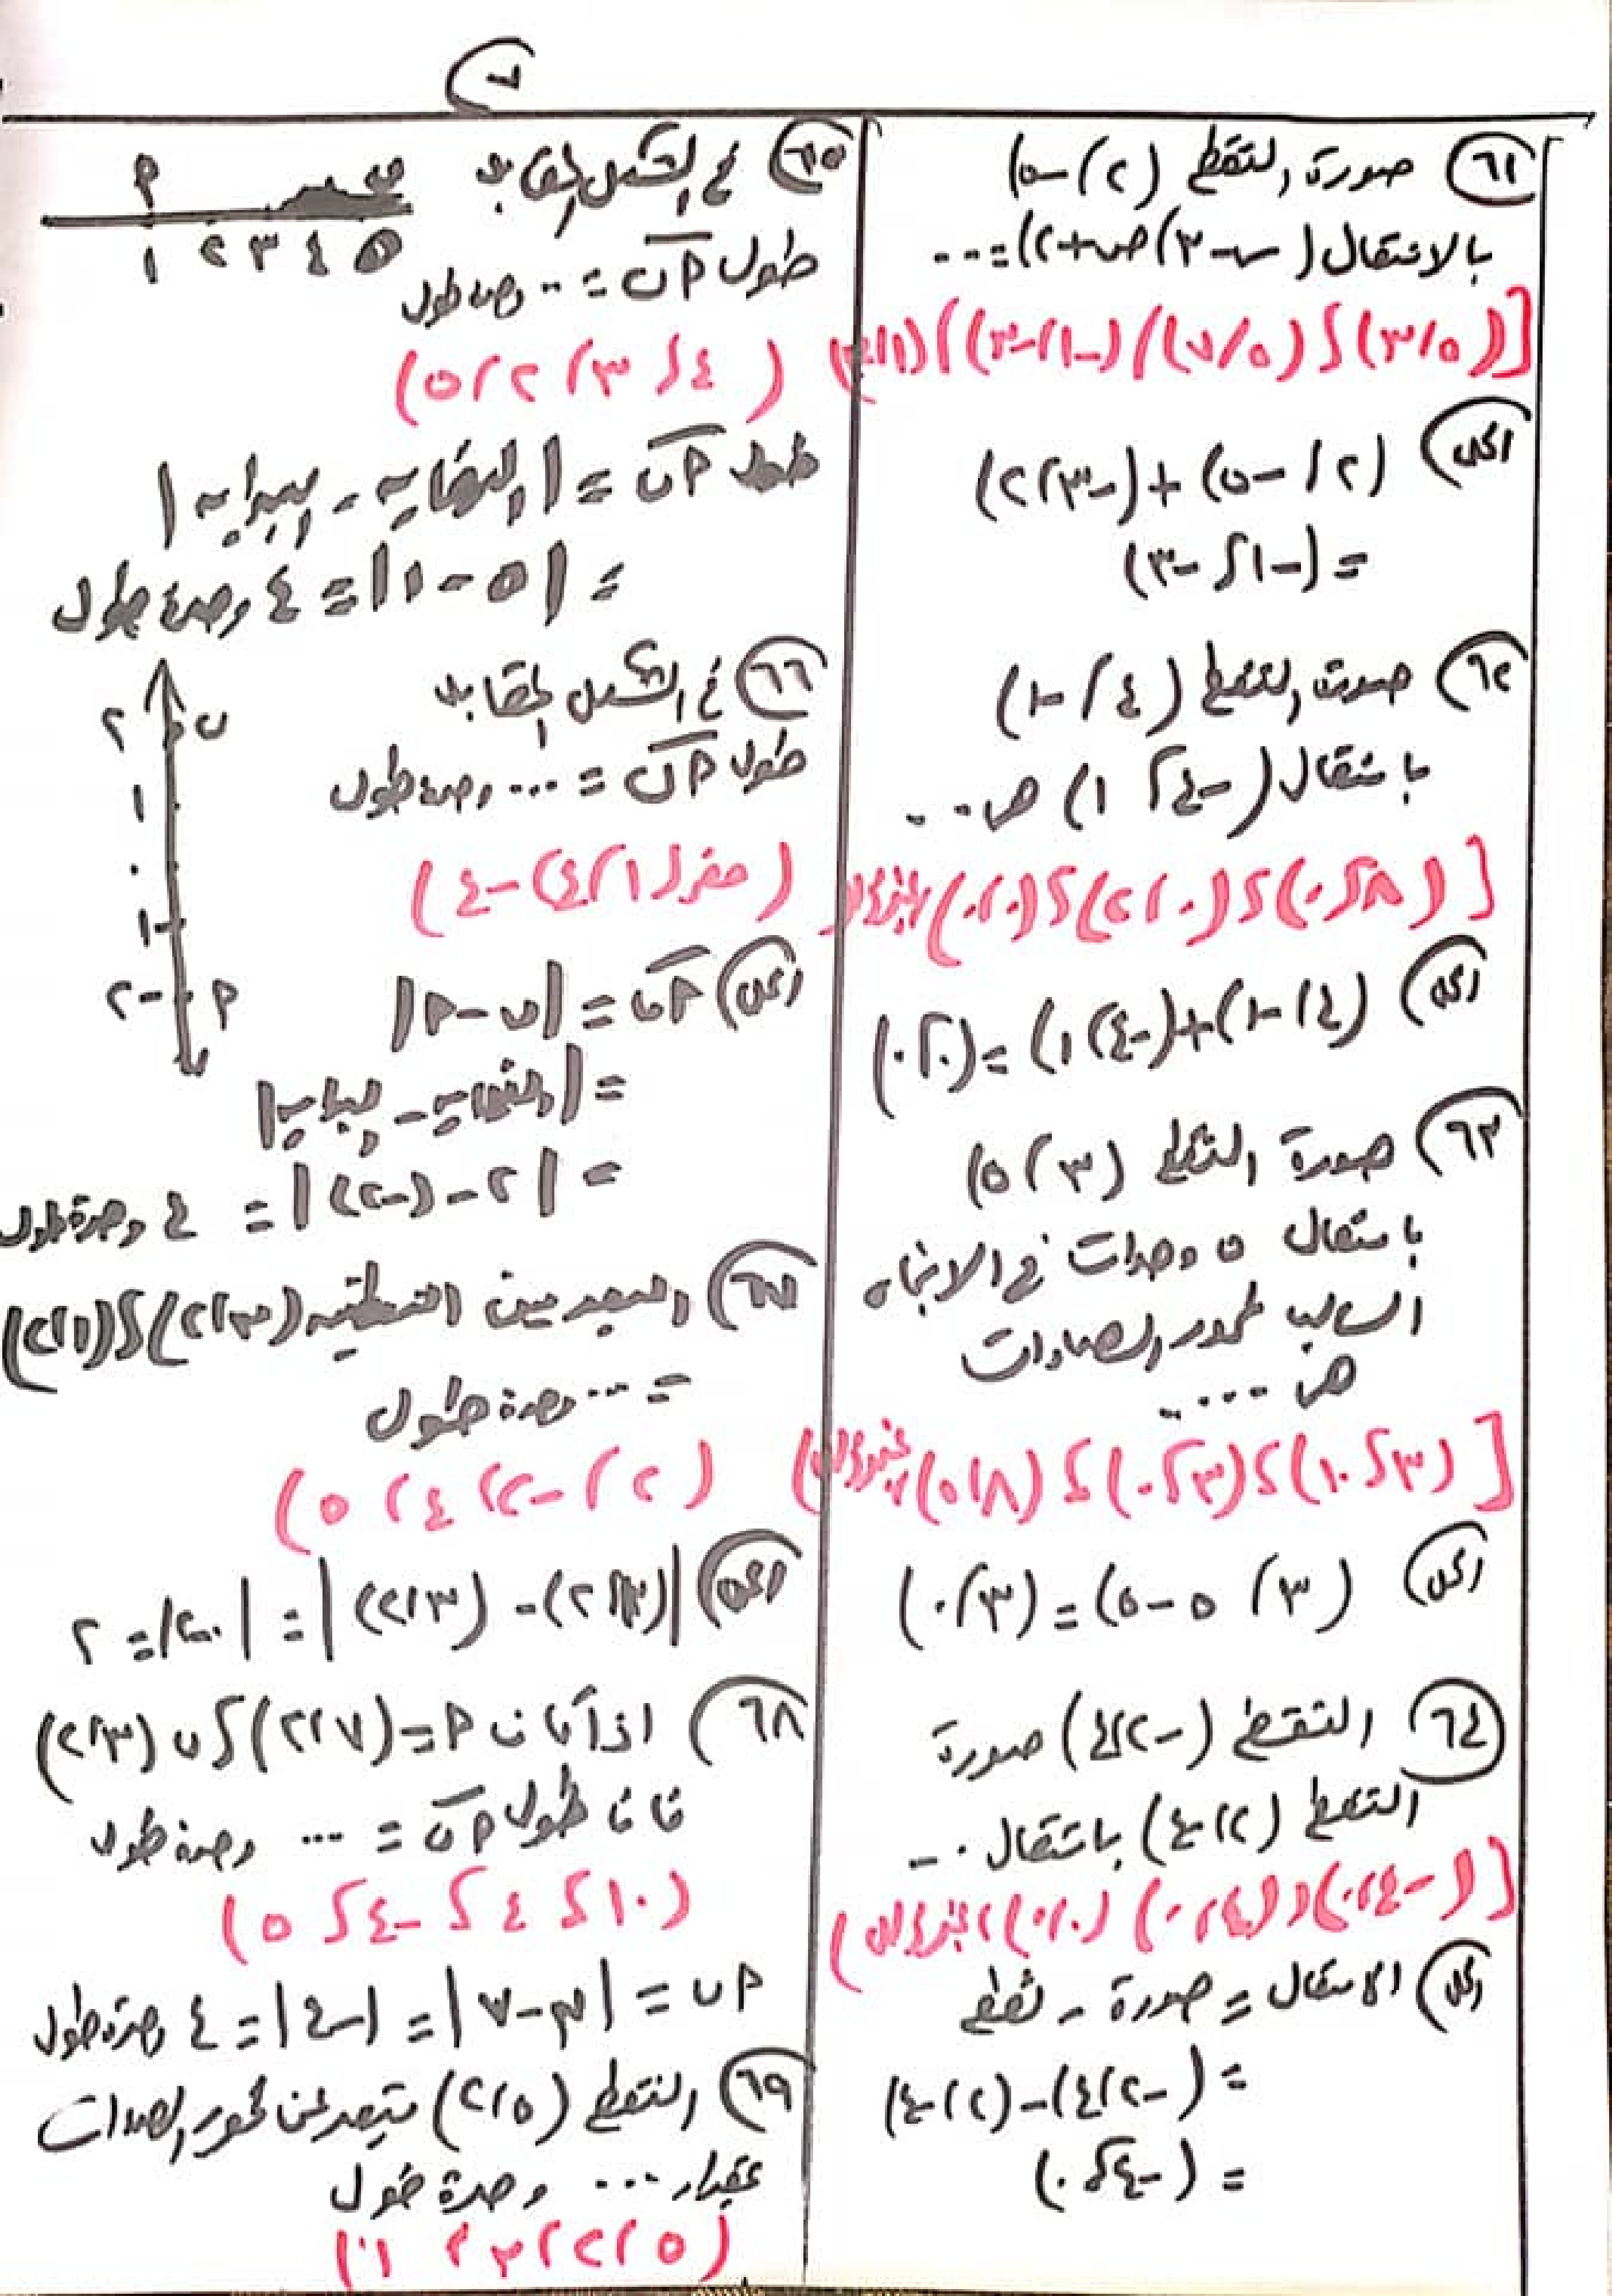 ٧
٦١ صورة النقطة (٢، -٥)
بالانتقال (س - ٣، ص + ٢) = ...
[(٥، ٣)، (٥، ٧)، (-١، -٣)،
الحل (٢، -٥) + (-٣، ٢)
= (-١، -٣)
٦٢ صورة النقطة (٤، -١)
بانتقال (-٤، ١) هى ...
[(٨، ٠)، (٠، ٢)، (٠، ٠)، غير ذلك
الحل (٤، -١) + (-٤، ١) = (٠، ٠)
٦٣ صورة النقطة (٣، ٥)
بانتقال ٥ وحدات في الاتجاه
السالب لمحور الصادات
هى ....
[(٣، ١٠)، (٣، ٠)، (٨، ٥)، غير ذلك)
الحل (٣، ٥ - ٥) = (٣، ٠)
٦٤ النقطة (-٢، ٤) صورة
النقطة (٢، ٤) بانتقال ...
[(-٤، ٠)، (٤، ٠)، (٠، ٠)، غير ذلك)
الحل الانتقال = صورة - نقطة
= (-٢، ٤) - (٢، ٤)
= (-٤، ٠)
٦٥ في الشكل المقابل
م
١ ٢ ٣ ٤ ٥
طول م ب = ... وحدة طول
(٤، ٣، ٢، ٥)
طول م ب = |النهاية - البداية|
= |٥ - ١| = ٤ وحدة طول
٦٦ في الشكل المقابل
٢ ب
١
٠
-١
-٢ م
طول م ب = ... وحدة طول
(صفر، ١، ٤، -٤)
الحل م ب = |ب - م|
= |النهاية - البداية|
= |٢ - (-٢)| = ٤ وحدة طول
٦٧ البعد بين النقطتين (٣، ٢)، (١، ٢)
= ... وحدة طول
(٢، -٢، ٤، ٥)
الحل = ٢
٦٨ اذا كانت م = (٧، ٢)، ب (٣، ٢)
فان طول م ب = ... وحدة طول
(١٠، ٤، -٤، ٥)
م ب = |٣ - ٧| = |-٤| = ٤ وحدة طول
٦٩ النقطة (٥، ٢) تبعد عن محور الصادات
بمقدار ... وحدة طول
(٥، ٢، ٣،